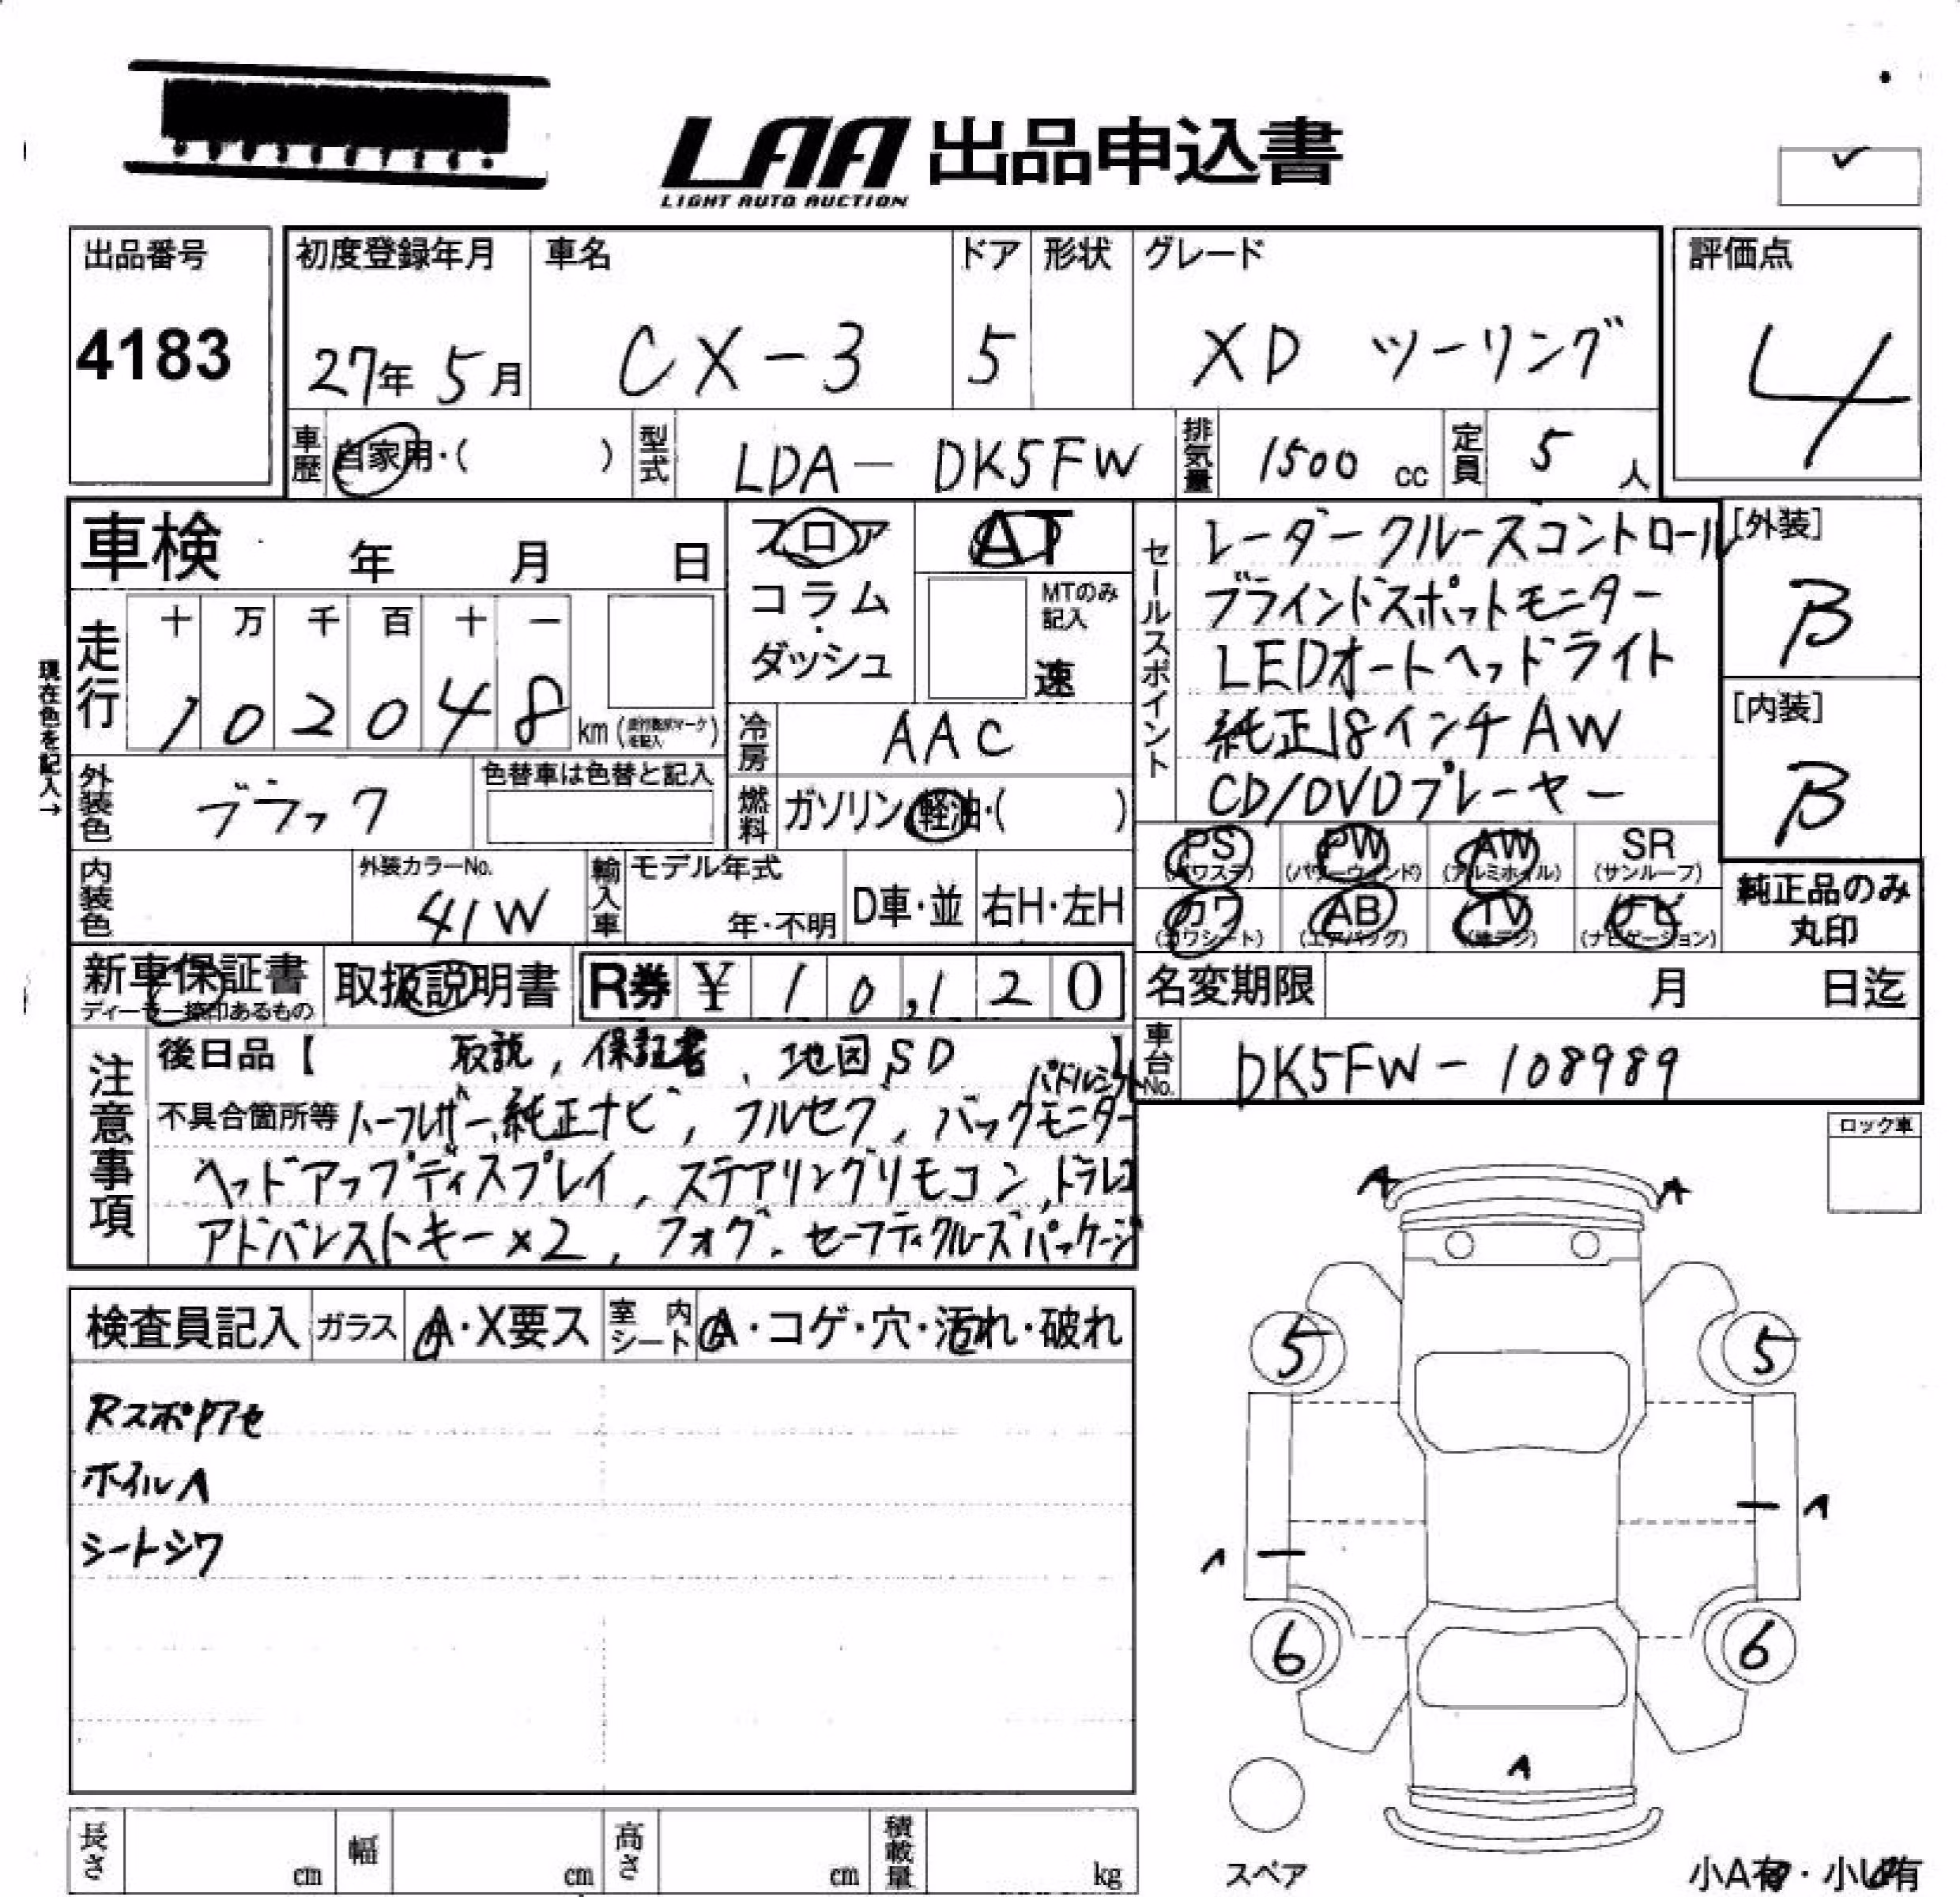 LAA 出品申込書
LIGHT AUTO AUCTION
出品番号
4183
初度登録年月
27年 5月
車名
CX-3
ドア
5
形状
グレード
XD ツーリング
評価点
4
車歴
自家用・( )
型式
LDA- DK5FW
排気量
1500 cc
定員
5 人
車検 年 月 日
フロア
コラム・ダッシュ
AT
MTのみ記入
速
セールスポイント
レーダークルーズコントロール
ブラインドスポットモニター
LEDオートヘッドライト
純正18インチAW
CD/DVDプレーヤー
[外装]
B
[内装]
B
現在色を記入→
走行
十 万 千 百 十 一
1 0 2 0 4 8 km
冷房
AAC
外装色
ブラック
色替車は色替と記入
燃料
ガソリン・軽油・( )
PS
(パワステ)
PW
(パワーウィンド)
AW
(アルミホイル)
SR
(サンルーフ)
カワ
(カワシート)
AB
(エアバッグ)
TV
ナビ
(ナビゲーション)
純正品のみ
丸印
内装色
外装カラーNo.
41W
輸入車
モデル年式
年・不明
D車・並
右H・左H
新車保証書
ディーラー捺印あるもの
取扱説明書
R券 ¥ 10,120
名変期限 月 日迄
車台No.
DK5FW-108989
注意事項
後日品【 取説, 保証書, 地図SD 】
パドルシフト
不具合箇所等 ハーフレザー, 純正ナビ, フルセグ, バックモニター
ヘッドアップディスプレイ, ステアリングリモコン, ドラレコ
アドバンストキー×2, フォグ, セーフティクルーズパッケージ
ロック車
検査員記入
ガラス
A・X要ス
室内シート
A・コゲ・穴・汚れ・破れ
Rスポリアセ
ホイルA
シートシワ
A A
5 5
A
A
6 6
A
スペア
小A有・小U有
長さ cm
幅 cm
高さ cm
積載量 kg